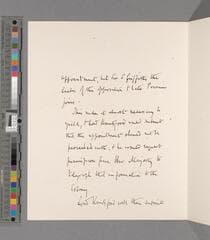 appointment, but Sir S. Griffith, the
leader of the opposition & late Premier
does.
This makes it almost necessary to
yield, & Lord Knutsford would submit
that the appointment should not be
proceeded with, & he would request
permission from Her Majesty to
telegraph this information to the
Colony.
Lord Knutsford will then submit